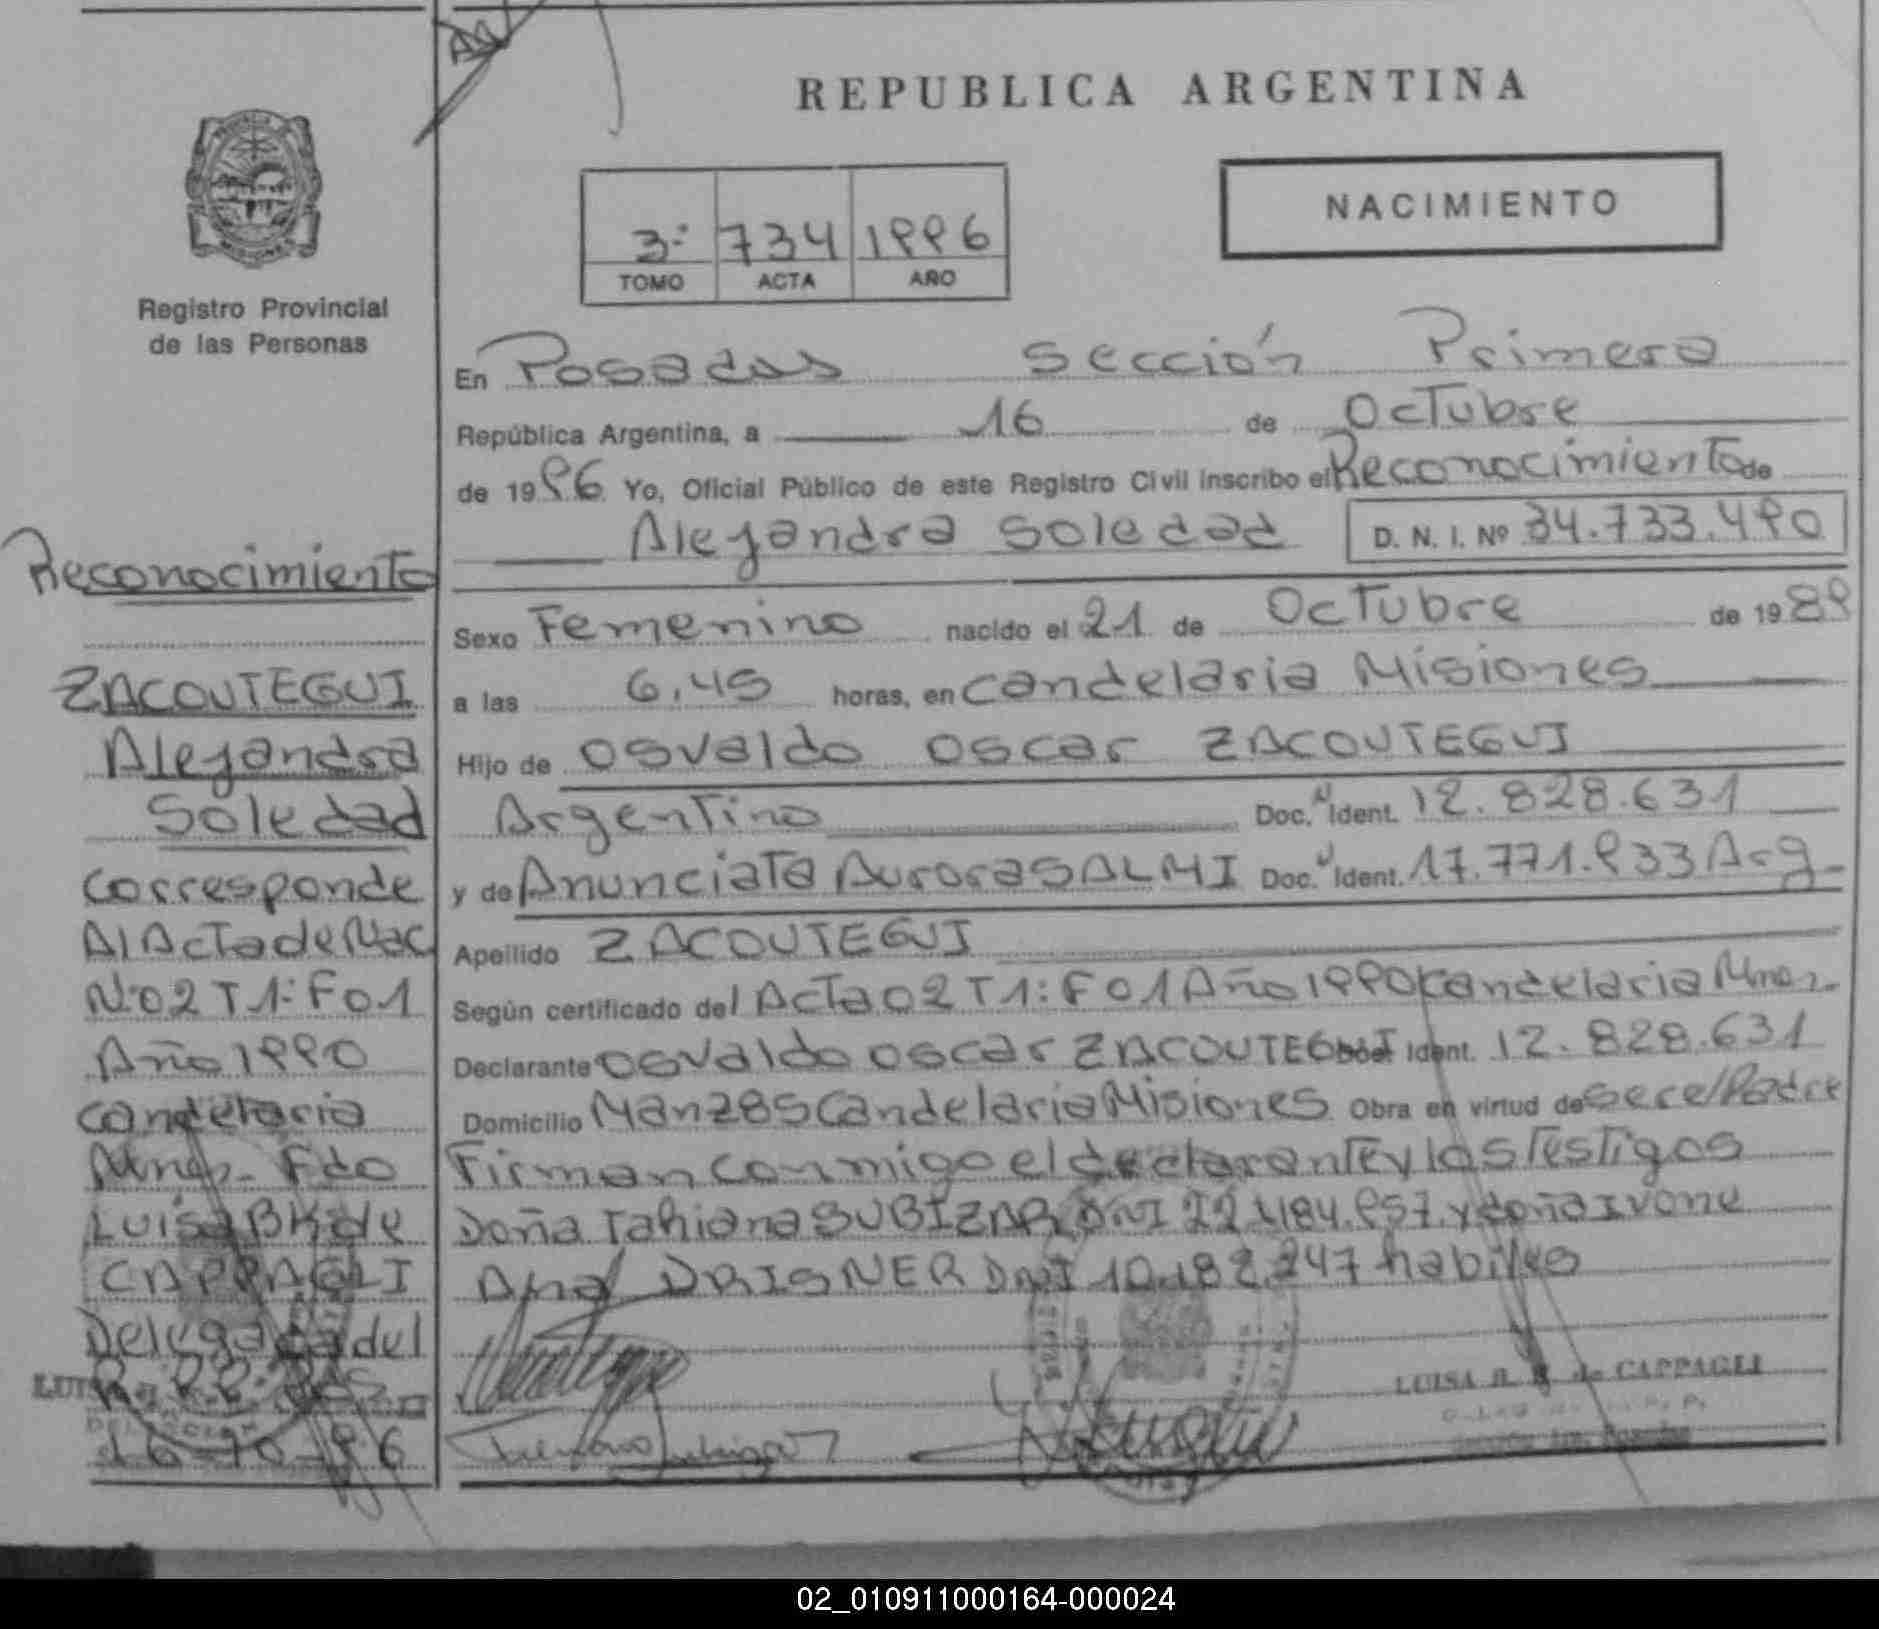 REPUBLICA ARGENTINA
NACIMIENTO
3º 734 1996
TOMO ACTA AÑO
Registro Provincial
de las Personas
En Posadas Sección Primera
República Argentina, a 16 de Octubre
de 1996 Yo, Oficial Público de este Registro Civil inscribo el Reconocimiento de
Alejandra Soledad D. N. I. Nº 34.733.490
Sexo Femenino nacido el 21 de Octubre de 1989
a las 6,45 horas, en Candelaria Misiones
Hijo de Osvaldo Oscar ZACOUTEGUI
Argentino Doc. Ident. 12.828.631
y de Anunciata Aurora SALMI Doc. Ident. 17.771.933 Arg
Apellido ZACOUTEGUI
Según certificado del Acta 02 T1: F01 Año 1990 Candelaria Mnes.
Declarante Osvaldo Oscar ZACOUTEGUI Ident. 12.828.631
Domicilio Manz 85 Candelaria Misiones Obra en virtud de ser el Padre
Firman conmigo el declarante y los Testigos
Doña Tahiana SUBIZAR DNI 22.184.957 y doña Ivone
Ana DRISNER DNI 10.182.247 habiles
LUISA B. K. de CAPPAGLI
Reconocimiento
ZACOUTEGUI
Alejandra
Soledad
Corresponde
Al Acta de Nac
Nº 02 T1: F01
Año 1990
Candelaria
Mnes. Fdo
Luisa BK de
CAPPAGLI
Delegada del
16-10-96
02_010911000164-000024